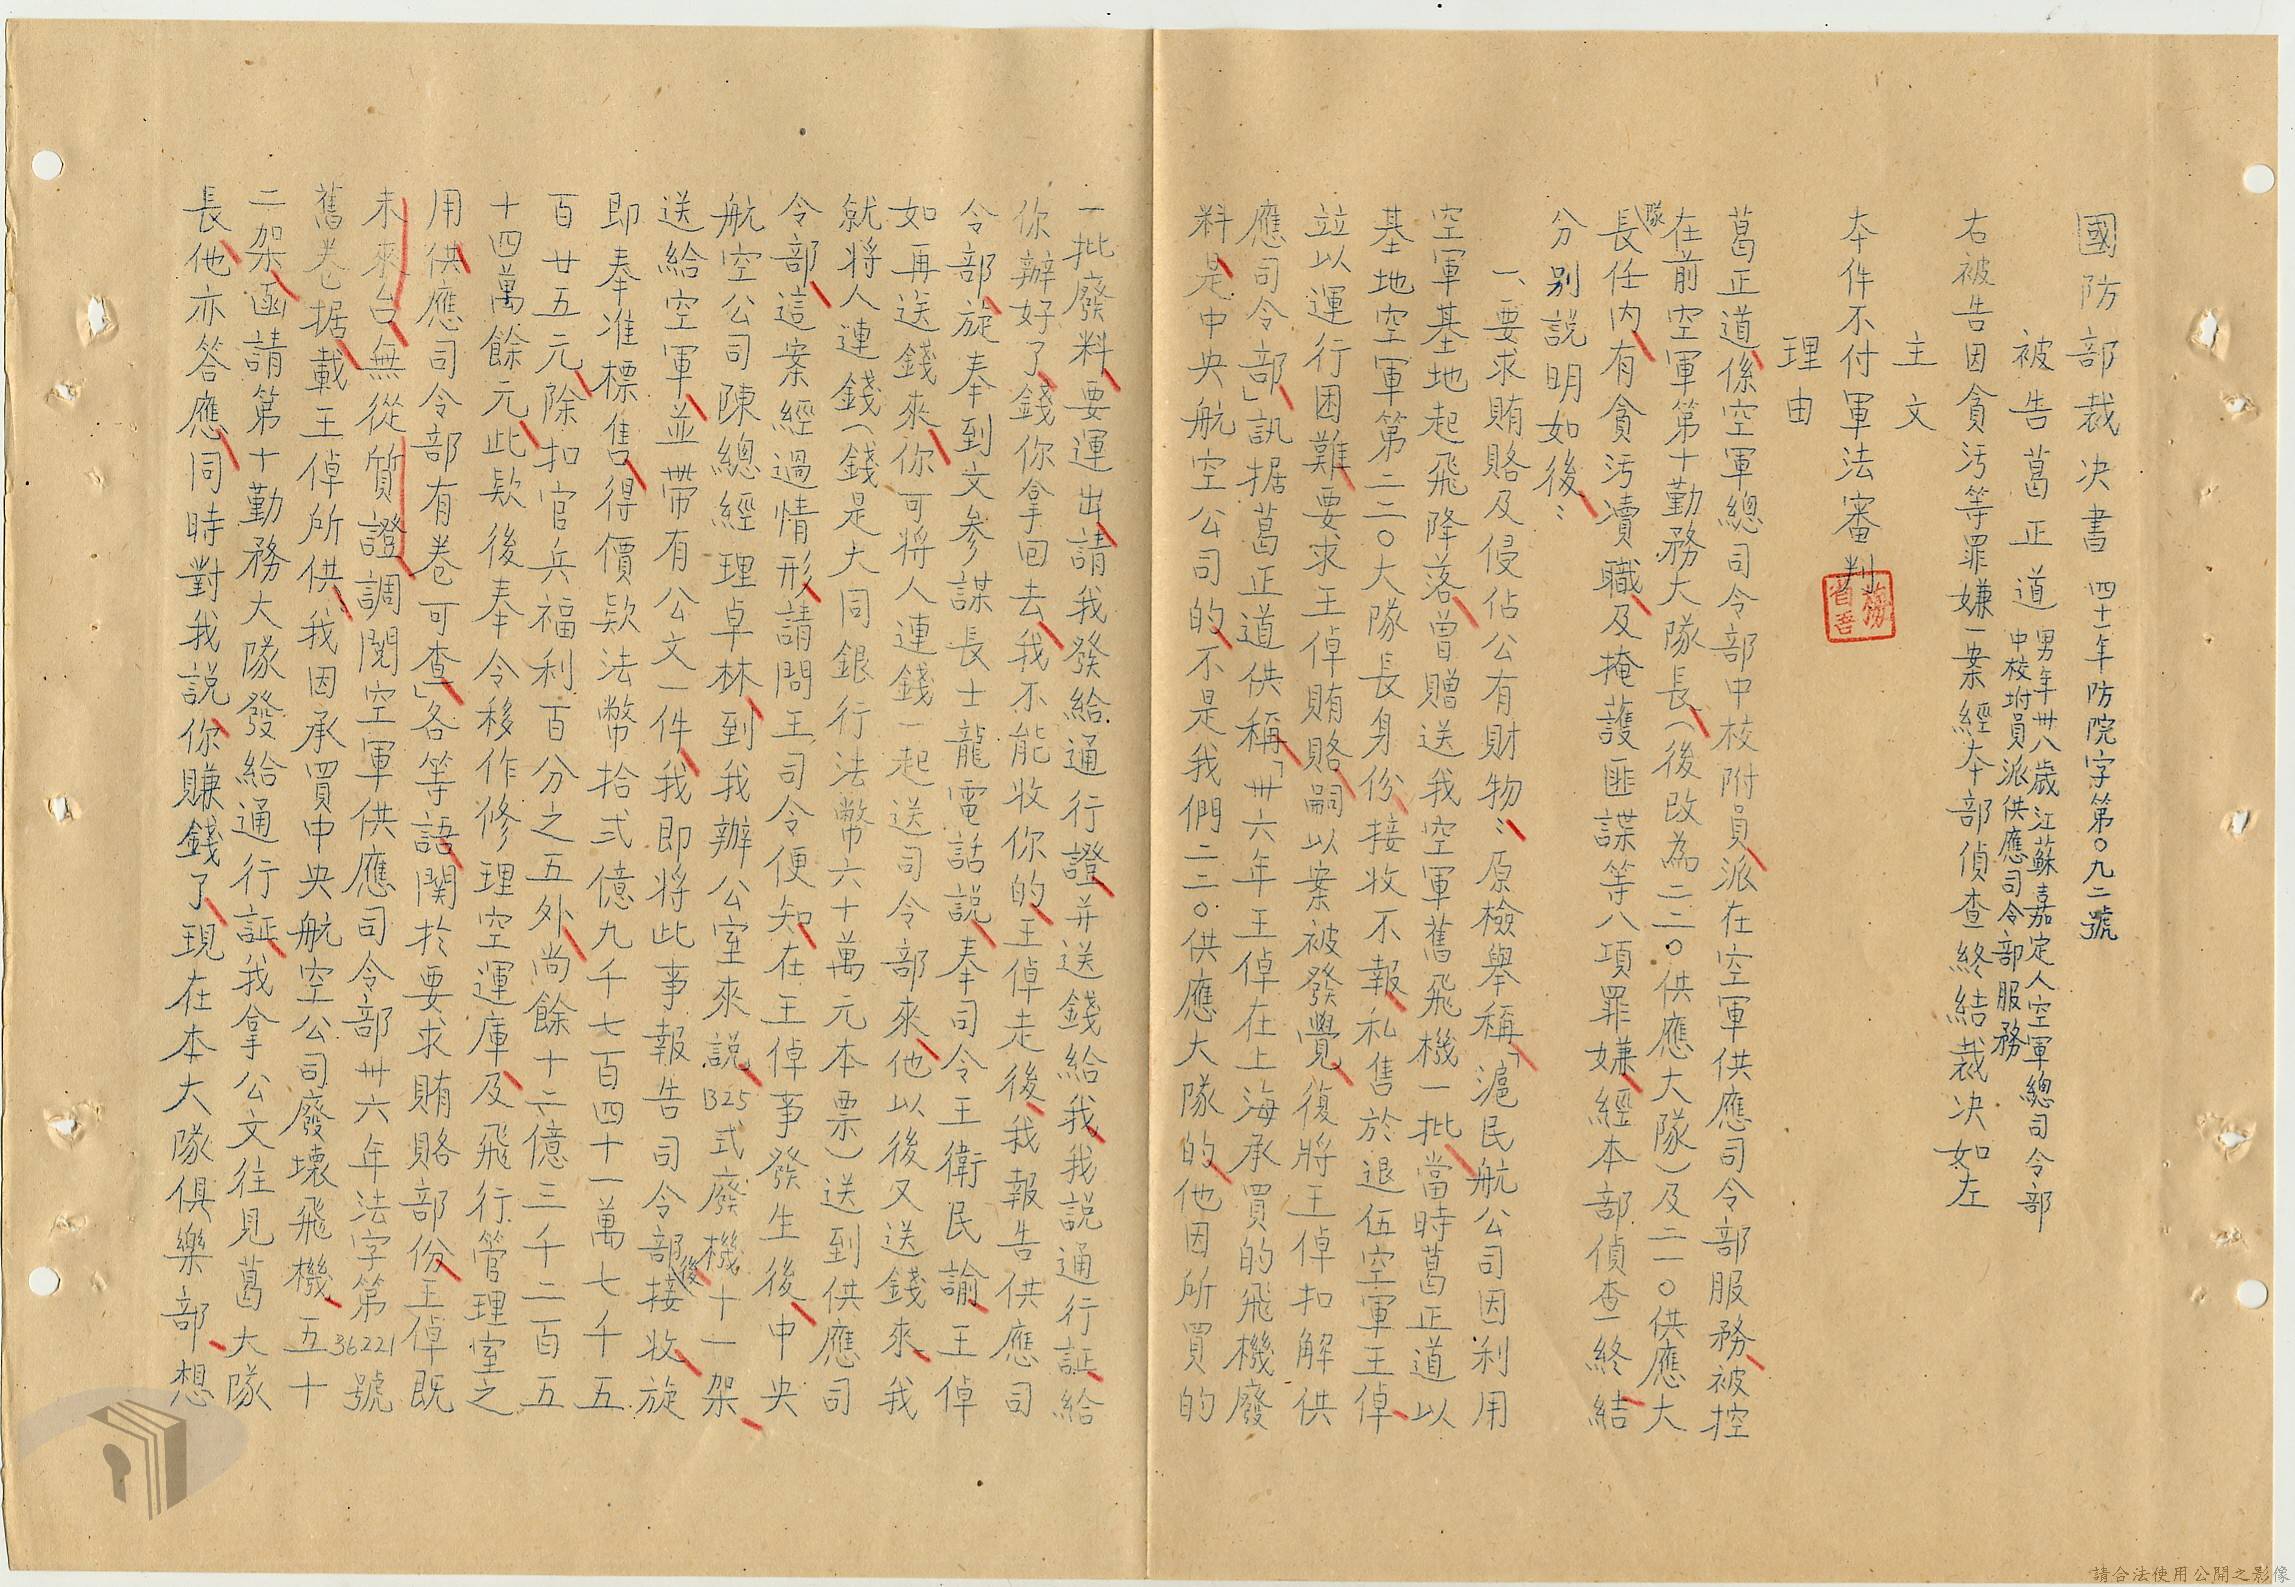 國防部裁決書 四十一年防院字第〇九二號
被告葛正道 男年卅八歲江蘇嘉定人空軍總司令部
中校坿員派供應司令部服務
右被告因貪污等罪嫌一案經本部偵查終結裁決如左
主文
本件不付軍法審判
理由
葛正道係空軍總司令部中校附員派在空軍供應司令部服務被控
在前空軍第十勤務大隊長(後改為二二〇供應大隊)及二一〇供應大
隊長任內有貪污瀆職及掩護匪諜等八項罪嫌經本部偵查終結
分別説明如後:
一、要求賄賂及侵佔公有財物:原檢舉稱「滬民航公司因利用
空軍基地起飛降落曾贈送我空軍舊飛機一批當時葛正道以
基地空軍第二二〇大隊長身份接收不報私售於退伍空軍王倬
竝以運行困難要求王倬賄賂嗣以案被發覺復將王倬扣解供
應司令部」訊据葛正道供稱「卅六年王倬在上海承買的飛機廢
料是中央航空公司的不是我們二二〇供應大隊的他因所買的
一批廢料要運出請我發給通行證并送錢給我我説通行証給
你辦好了錢你拿回去我不能收你的王倬走後我報告供應司
令部旋奉到文參謀長士龍電話説奉司令王衛民諭王倬
如再送錢來你可將人連錢一起送司令部來他以後又送錢來我
就將人連錢(錢是大同銀行法幣六十萬元本票)送到供應司
令部這案經過情形請問王司令便知在王倬事發生後中央
航空公司陳總經理卓林到我辦公室來説B25式廢機十一架
送給空軍並帶有公文一件我即將此事報告司令部後接收旋
即奉准標售得價欵法幣拾弍億九千七百四十一萬七千五
百廿五元除扣官兵福利百分之五外尚餘十二億三千二百五
十四萬餘元此欵後奉令移作修理空運庫及飛行管理室之
用供應司令部有卷可查」各等語関於要求賄賂部份王倬既
未來台無從質證調閱空軍供應司令部卅六年法字第36221號
舊卷据載王倬所供我因承買中央航空公司廢壞飛機五十
二架函請第十勤務大隊發給通行証我拿公文往見葛大隊
長他亦答應同時對我説你賺錢了現在本大隊俱樂部想
請合法使用公開之影像